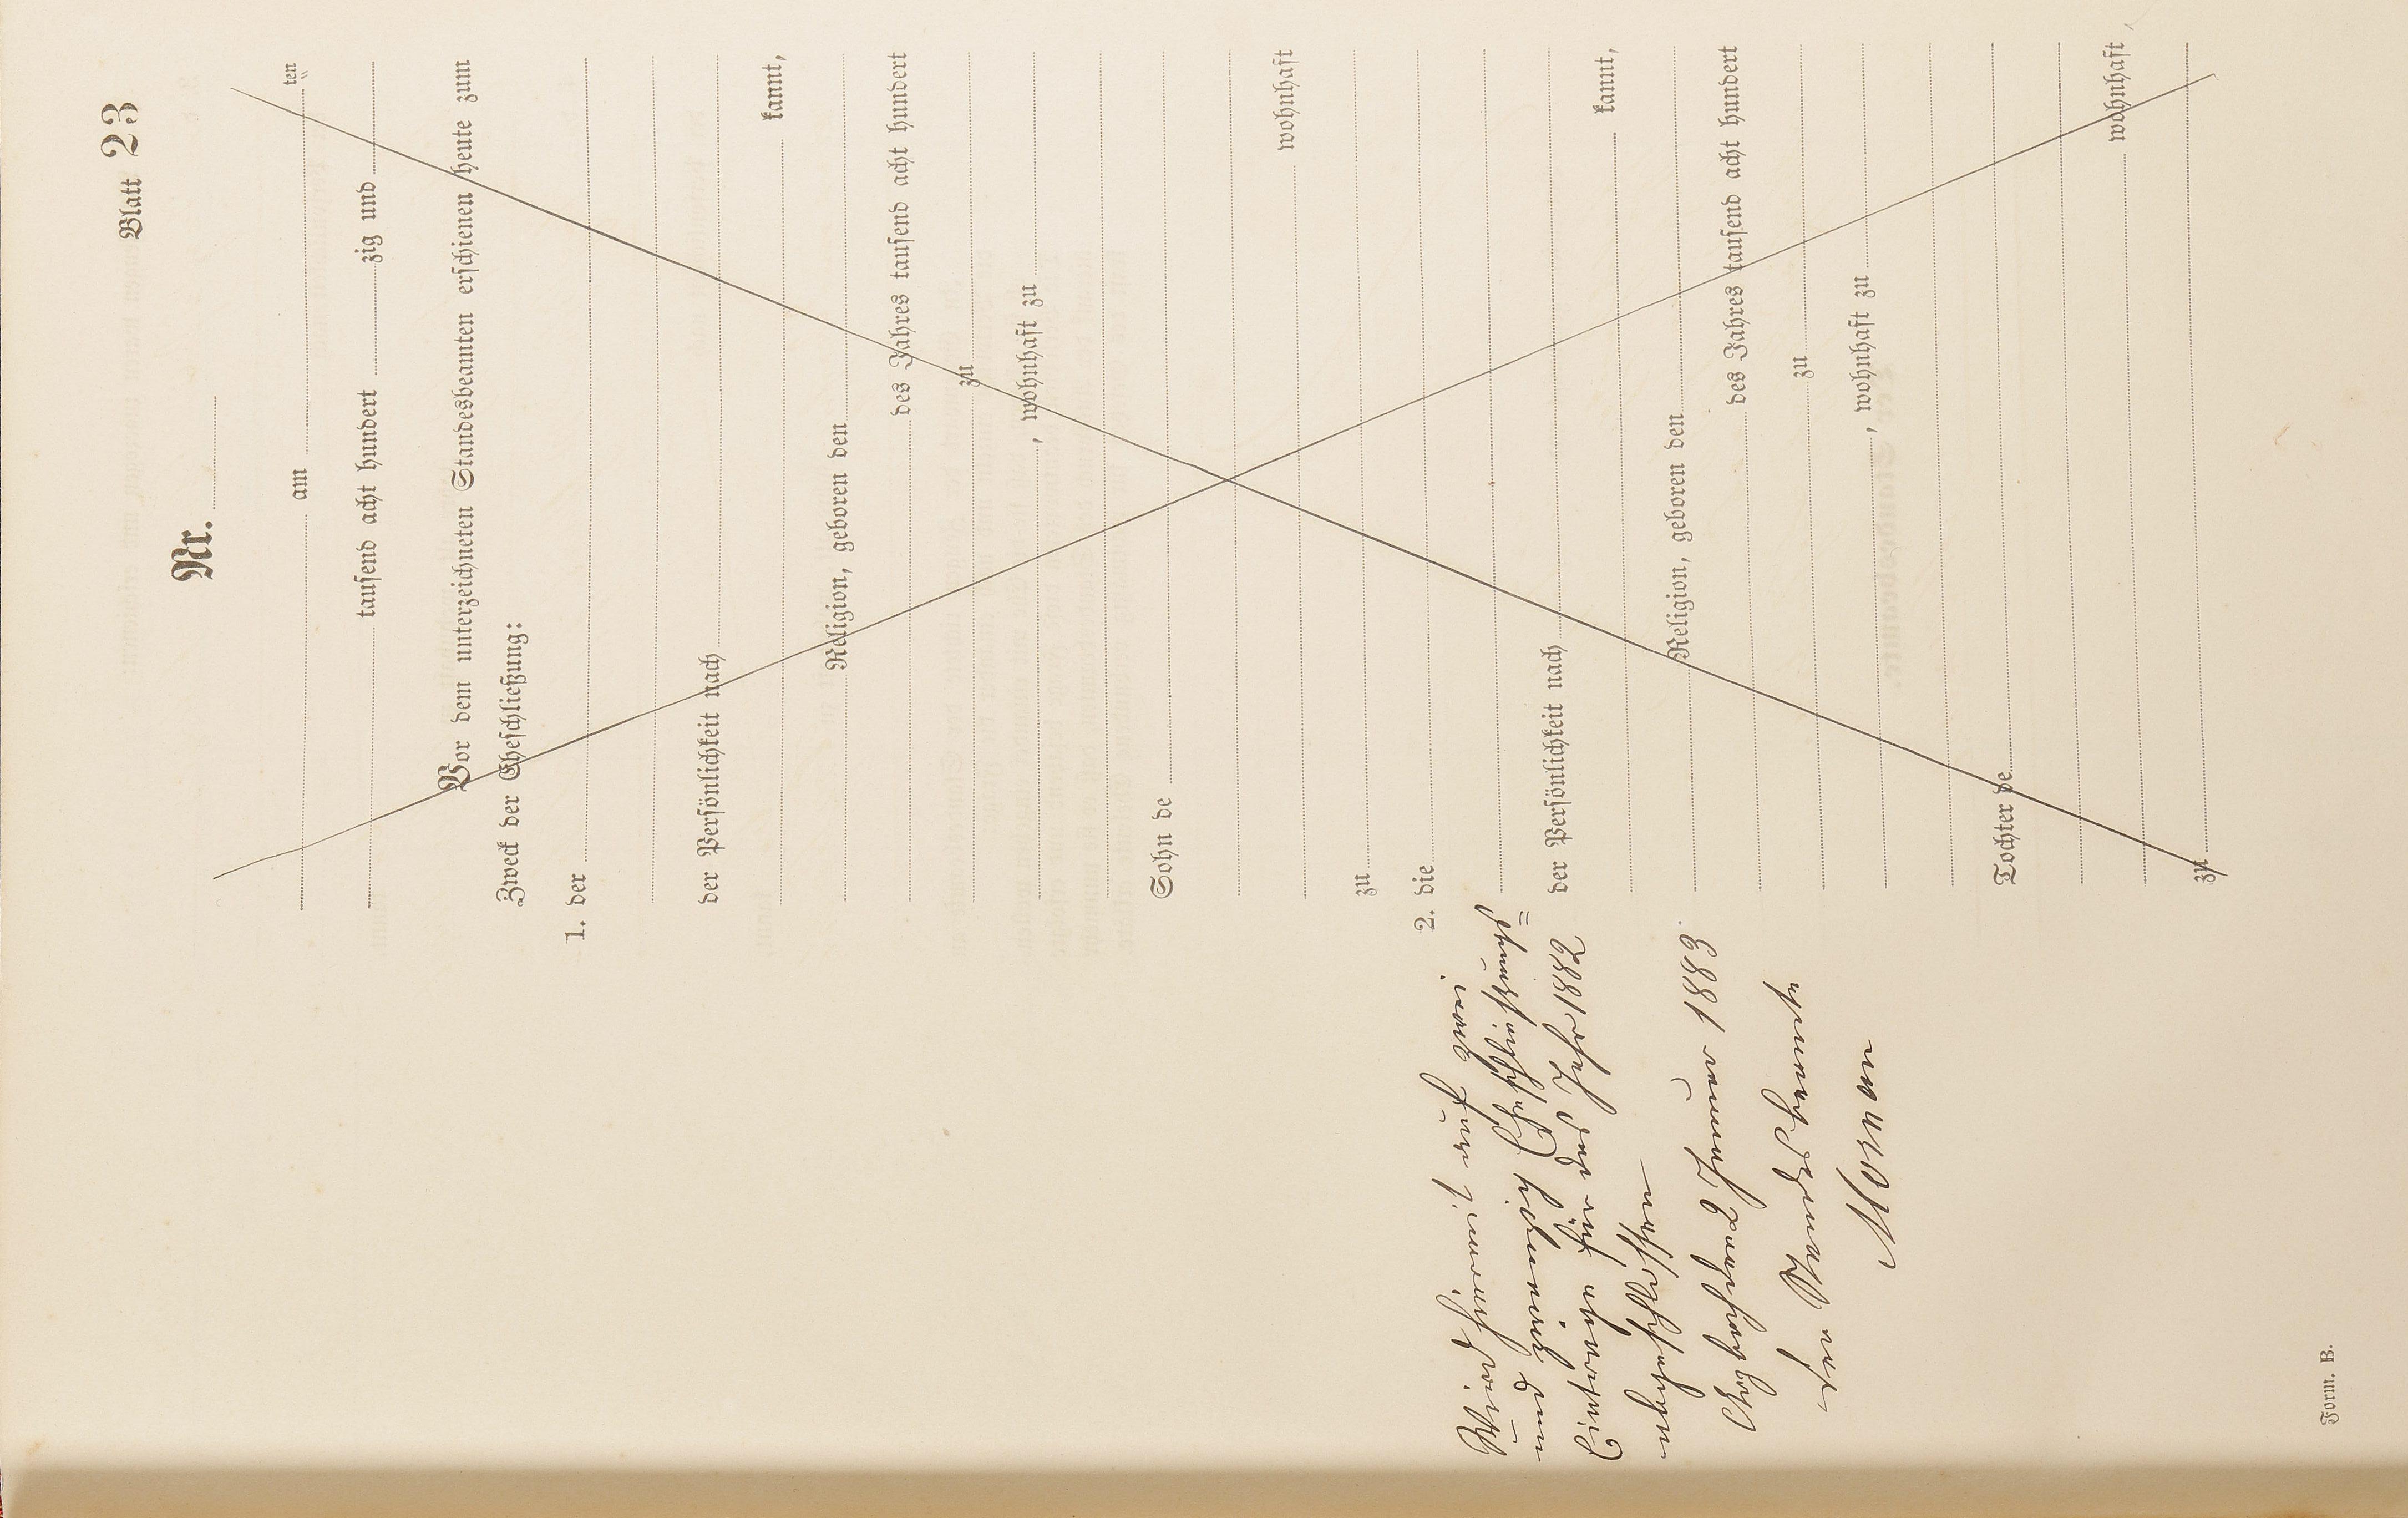 Blatt 23
Nr.
am ten
tausend acht hundert zig und
Vor dem unterzeichneten Standesbeamten erschienen heute zum
Zweck der Eheschließung:
1. der
der Persönlichkeit nach
kannt,
Religion, geboren den
des Jahres tausend acht hundert
zu
, wohnhaft zu
Sohn de
wohnhaft
zu
2. die
der Persönlichkeit nach
kannt,
Religion, geboren den
des Jahres tausend acht hundert
zu
, wohnhaft zu
Tochter de
wohnhaft
zu
auf zwei
und zwanzig Eheschließungs=
Einträge für das Jahr 1882
abgeschlossen
2 Januar 1883
Der Standesbeamte
Form. B.